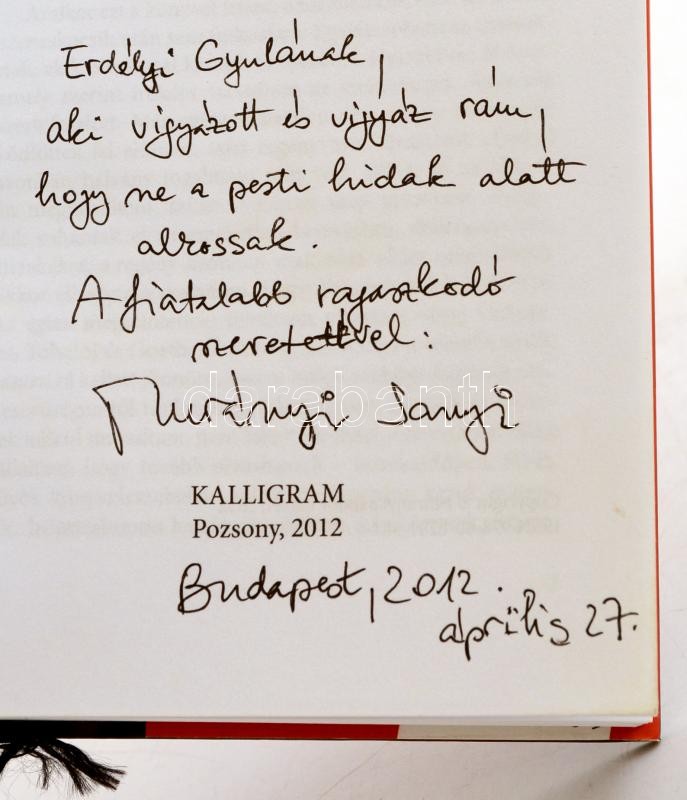 Erdélyi Gyulának,
aki vigyázott és vigyáz rám,
hogy ne a pesti hidak alatt
alrossak.
A fiatalabb ragaszkodó
szeretettvel:
Murányi Sanyi
darabanth
KALLIGRAM
Pozsony, 2012
Budapest, 2012.
április 27.